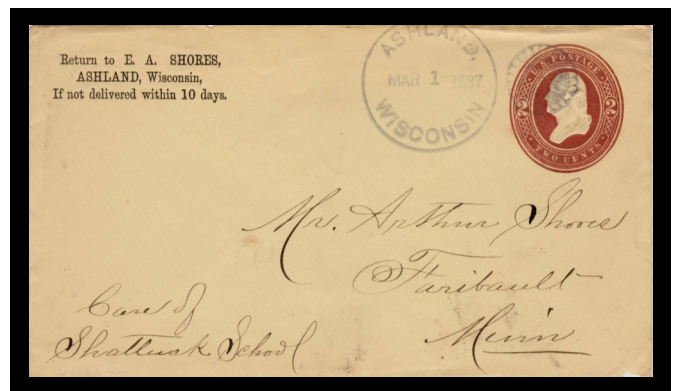 Return to E. A. SHORES,
ASHLAND, Wisconsin,
If not delivered within 10 days.
ASHLAND,
MAR 1 1887
WISCONSIN
U.S. POSTAGE
2 2
TWO CENTS
Mr. Arthur Shores
Faribault
Minn
Care of
Shattuck School